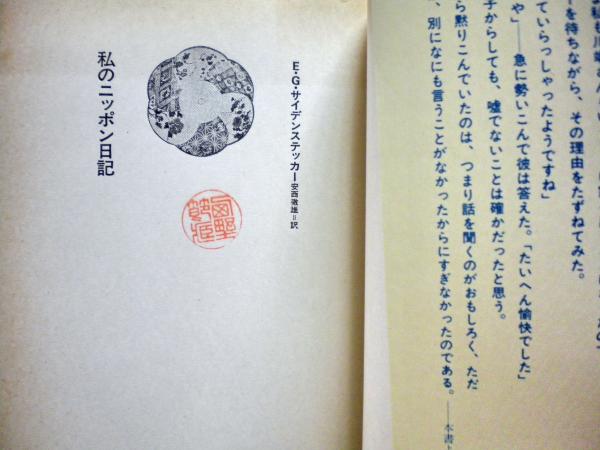 をを待ちながら、その理由をたずねてみた。
ていらっしゃったようですね」
や」――急に勢いこんで彼は答えた。「たいへん愉快でした」
子からしても、嘘でないことは確かだったと思う。
ら黙りこんでいたのは、つまり話を聞くのがおもしろく、ただ
、別になにも言うことがなかったからにすぎなかったのである。
――本書よ
E・G・サイデンステッカー
安西徹雄=訳
私のニッポン日記